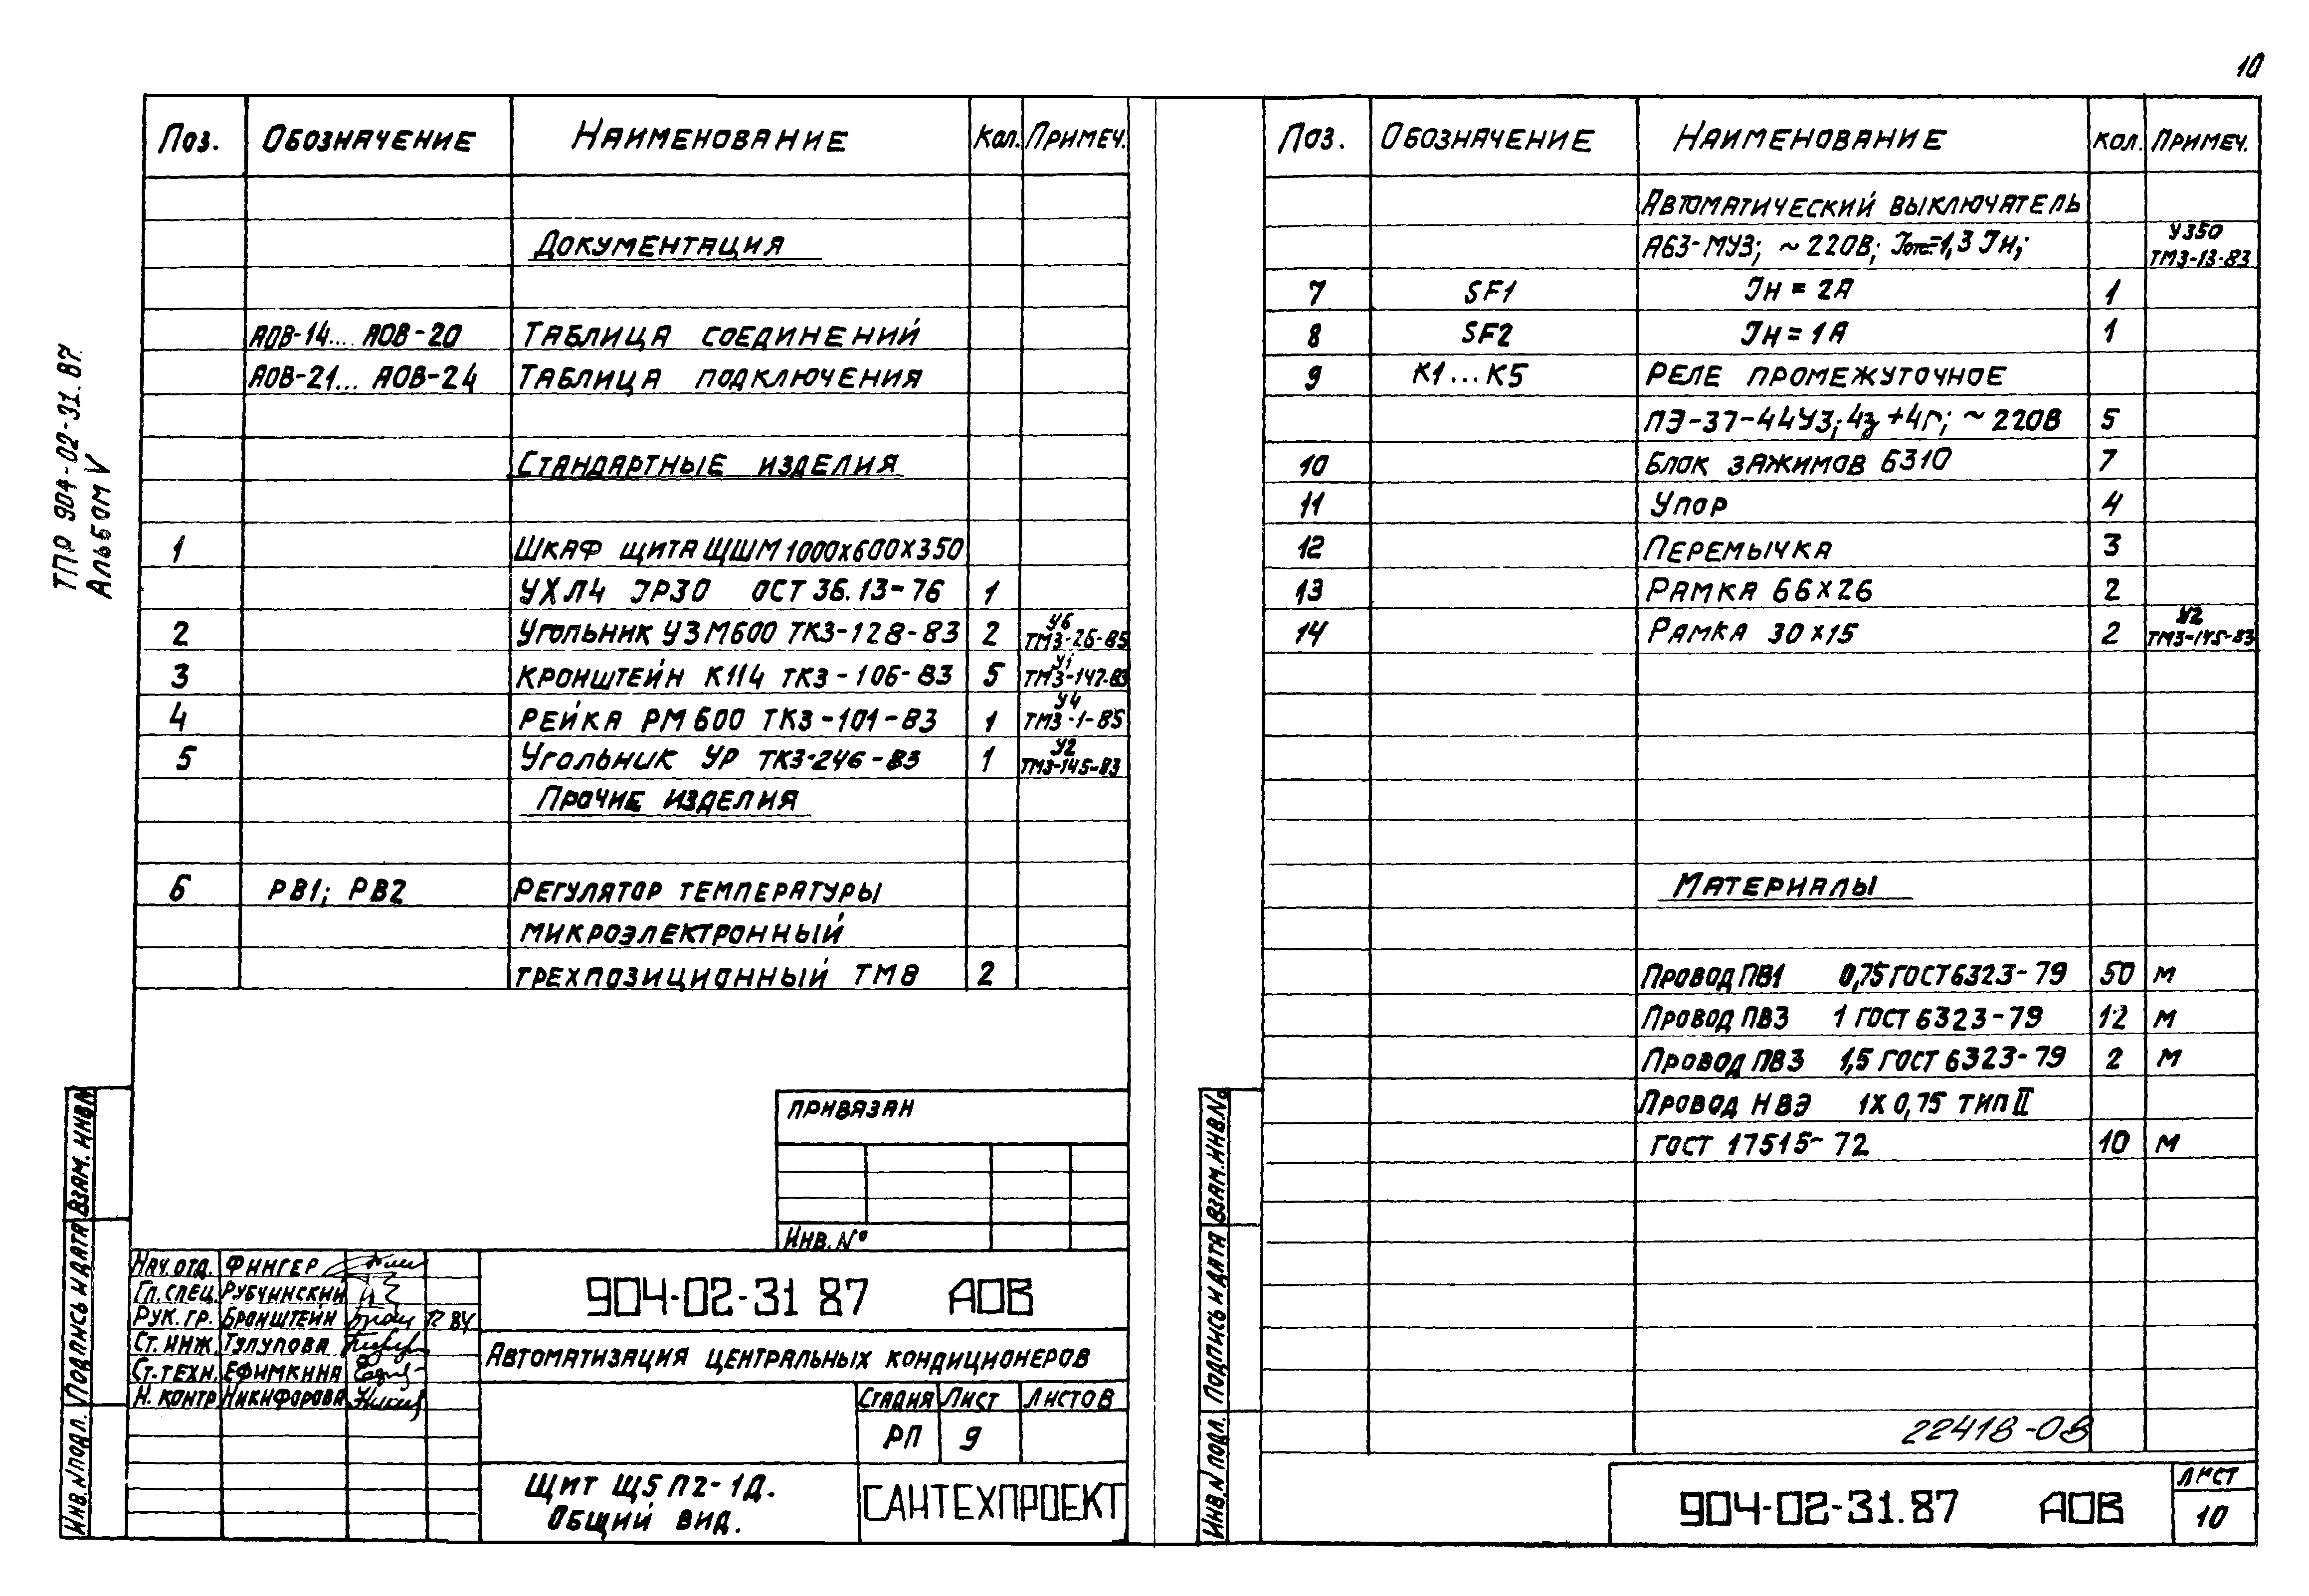 10
ТПР 904-02-31.87.
Альбом V
Поз. Обозначение Наименование Кол. Примеч.
Документация
АОВ-14.... АОВ-20 Таблица соединений
АОВ-21... АОВ-24 Таблица подключения
Стандартные изделия
1 Шкаф щита ЩШМ 1000х600х350
УХЛ4 JP30 ОСТ 36.13-76 1
2 Угольник УЗМ600 ТКЗ-128-83 2 У6 ТМЗ-26-85
3 Кронштейн К114 ТКЗ-106-83 5 У1 ТМЗ-147-83
4 Рейка РМ600 ТКЗ-101-83 1 У4 ТМЗ-1-85
5 Угольник УР ТКЗ-246-83 1 У2 ТМЗ-145-83
Прочие изделия
6 РВ1; РВ2 Регулятор температуры
микроэлектронный
трехпозиционный ТМ8 2
Привязан
Инв. №
Нач. отд. Фингер
Гл. спец. Рубчинский
Рук. гр. Бронштейн
Ст. инж. Тулупова
Ст. техн. Ефимкина
Н. контр Никифорова
904-02-31 87 АОВ
Автоматизация центральных кондиционеров
Стадия Лист Листов
РП 9
Щит Щ5П2-1Д.
Общий вид.
САНТЕХПРОЕКТ
Инв. N подл. Подпись и дата Взам. инв. N
Поз. Обозначение Наименование Кол. Примеч.
Автоматический выключатель
А63-МУЗ; ~220В; Jотс=1,3 Jн; У350 ТМЗ-13-83
7 SF1 Jн = 2А 1
8 SF2 Jн = 1А 1
9 К1...К5 Реле промежуточное
ПЭ-37-44УЗ; 4з+4р; ~220В 5
10 Блок зажимов Б310 7
11 Упор 4
12 Перемычка 3
13 Рамка 66х26 2
14 Рамка 30х15 2 У2 ТМЗ-145-83
Материалы
Провод ПВ1 0,75 ГОСТ 6323-79 50 м
Провод ПВ3 1 ГОСТ 6323-79 12 м
Провод ПВ3 1,5 ГОСТ 6323-79 2 м
Провод НВЭ 1х0,75 тип II
ГОСТ 17515-72 10 м
22418-08
904-02-31.87 АОВ
Лист
10
Инв. N подл. Подпись и дата Взам. инв. №